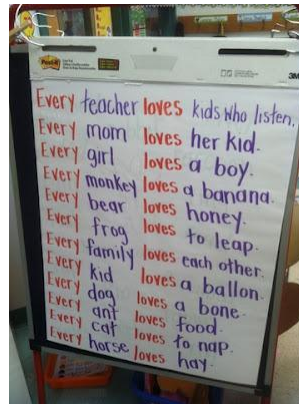 Post-it
3M
Every teacher loves kids who listen.
Every mom loves her kid.
Every girl loves a boy.
Every monkey loves a banana.
Every bear loves honey.
Every frog loves to leap.
Every family loves each other.
Every kid loves a ballon.
Every dog loves a bone.
Every ant loves food.
Every cat loves to nap.
Every horse loves hay.